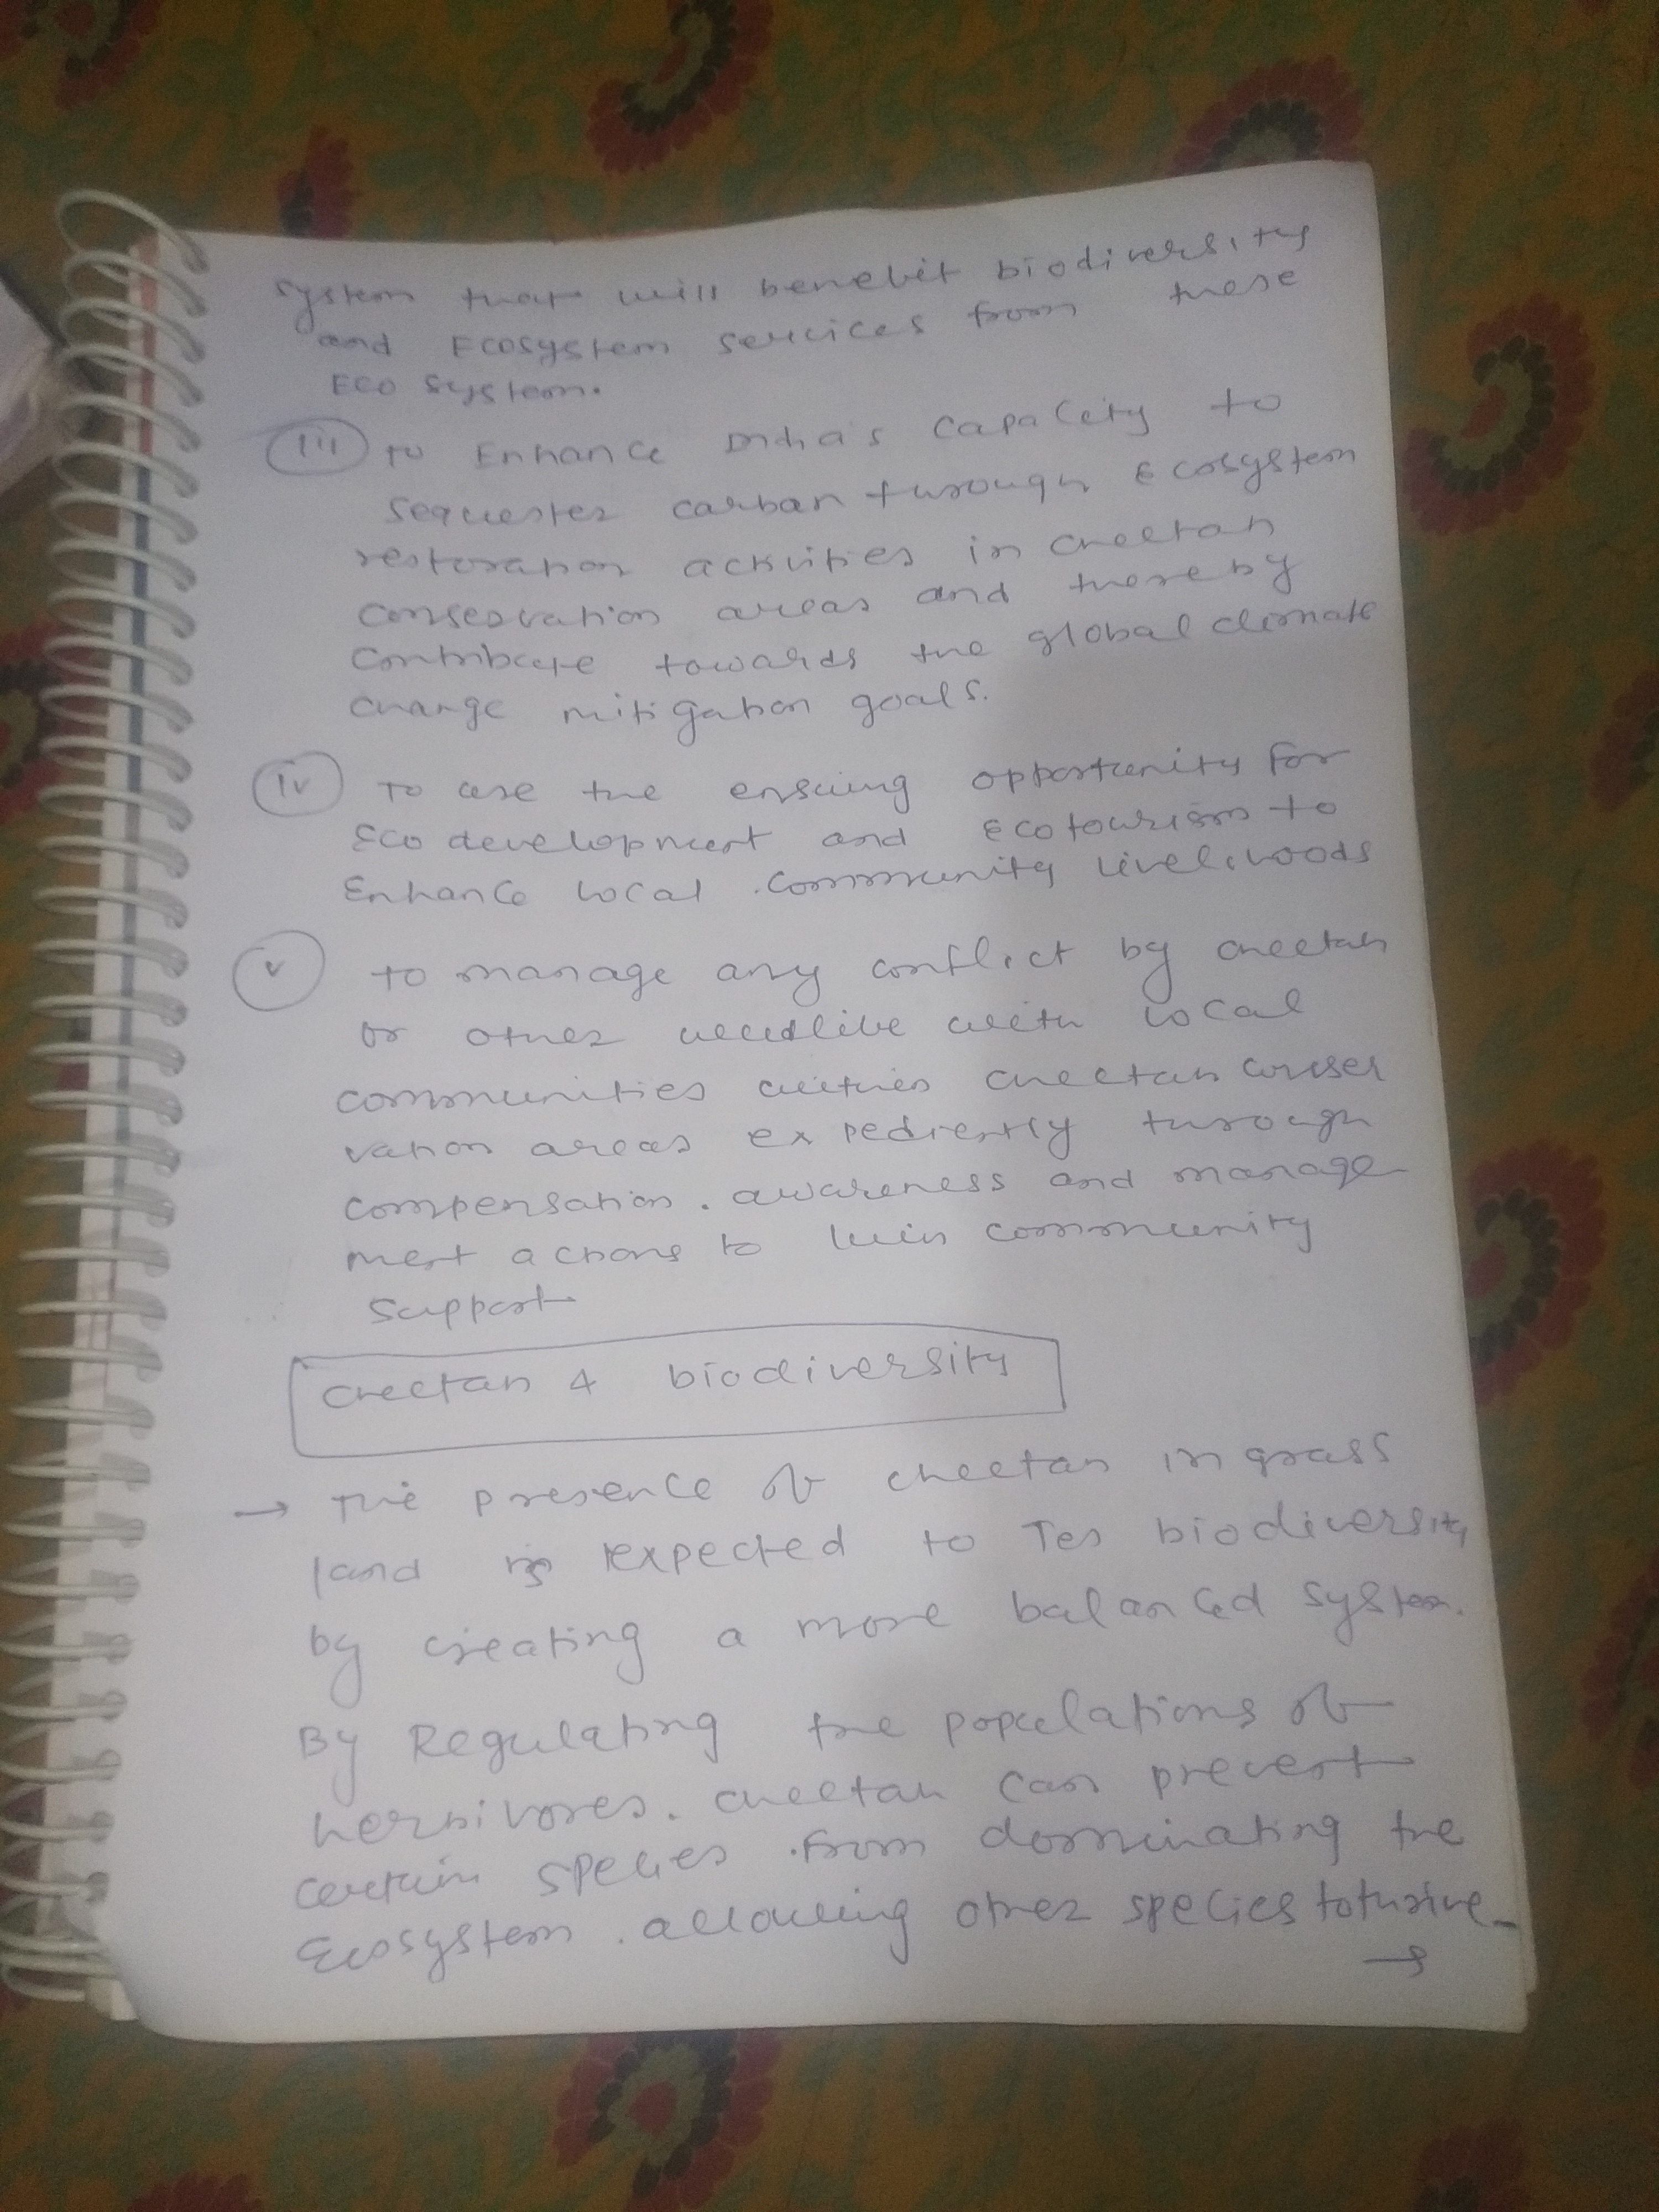 system that will benefit biodiversity
and Ecosystem services from these
Eco system.
(iii) to Enhance India's capacity to
sequester carbon through Ecosystem
restoration activities in cheetah
conservation areas and thereby
contribute towards the global climate
change mitigation goals.
(iv) To use the ensuing opportunity for
Eco development and ecotourism to
Enhance local community livelihoods
(v) to manage any conflict by cheetah
or other wildlife with local
communities within cheetah conser
vation areas expediently through
compensation. awareness and manage
ment actions to win community
support
Cheetah & biodiversity
→ The presence of cheetah in grass
land is expected to ↑es biodiversity
by creating a more balanced system.
By Regulating the populations of
herbivores. cheetah can prevent
certain species from dominating the
Ecosystem. allowing other species to thrive
→